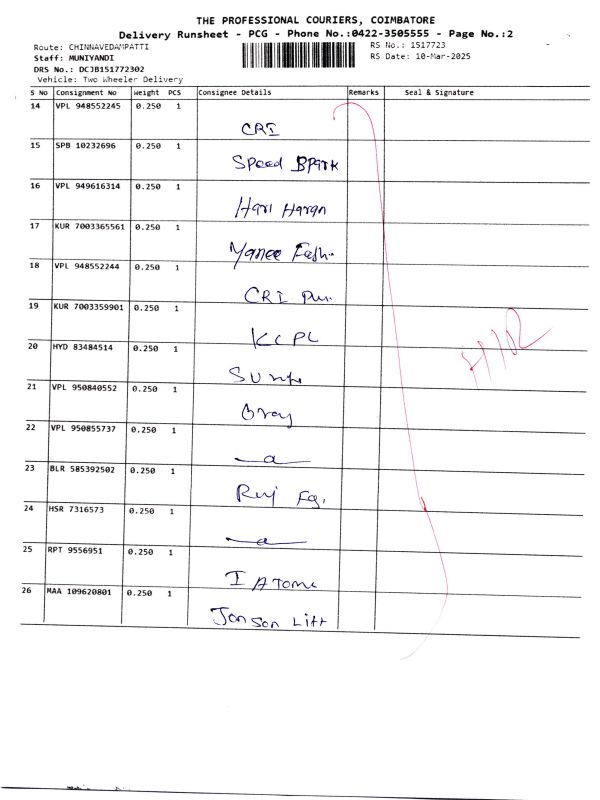 THE PROFESSIONAL COURIERS, COIMBATORE
Delivery Runsheet - PCG - Phone No.:0422-3505555 - Page No.:2
Route: CHINNAVEDAMPATTI RS No.: 1517723
Staff: MUNIYANDI RS Date: 10-Mar-2025
DRS No.: DCJB151772302
Vehicle: Two Wheeler Delivery
S No Consignment No Weight PCS Consignee Details Remarks Seal & Signature
14 VPL 948552245 0.250 1 CRI
15 SPB 10232696 0.250 1 Speed
16 VPL 949616314 0.250 1 Hari Haran
17 KUR 7003365561 0.250 1
18 VPL 948552244 0.250 1 CRI
19 KUR 7003359901 0.250 1 KCPL
20 HYD 83484514 0.250 1
21 VPL 950840552 0.250 1
22 VPL 950855737 0.250 1
23 BLR 585392502 0.250 1
24 HSR 7316573 0.250 1
25 RPT 9556951 0.250 1
26 MAA 109620801 0.250 1 Jonson